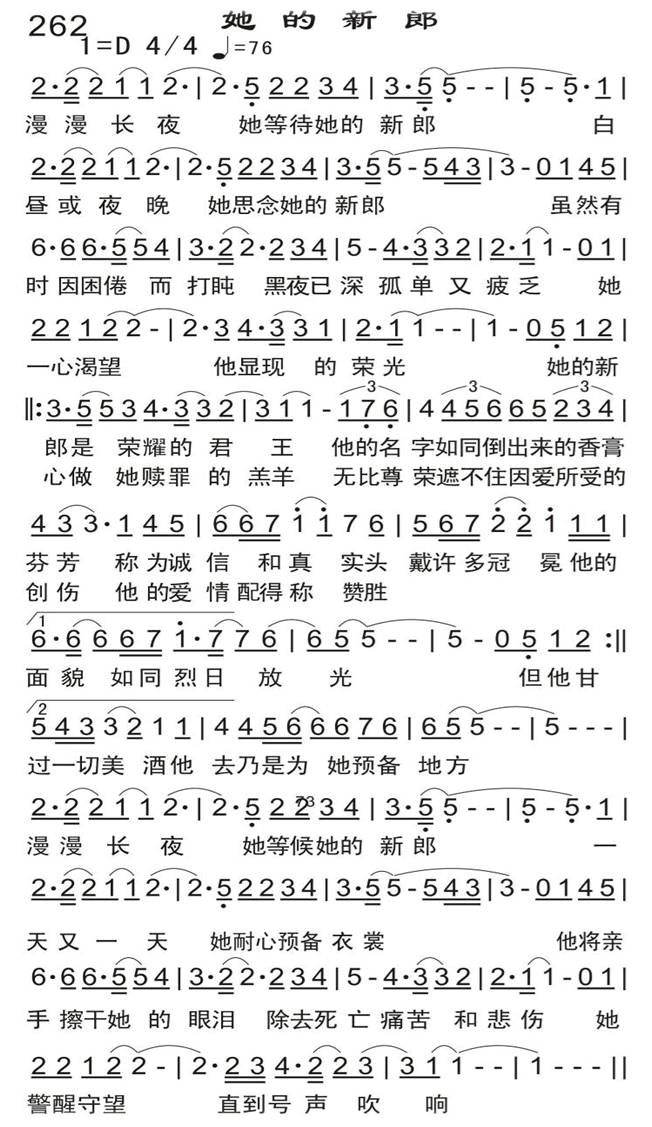 262 她的新郎
1=D 4/4 ♩=76
2·2 2 1 1 2·|2·5 2 2 3 4|3·5 5--|5-5·1|
漫漫长夜 她等待她的新郎 白
2·2 2 1 1 2·|2·5 2 2 3 4|3·5 5-5 4 3|3-0 1 4 5|
昼或夜晚 她思念她的新郎 虽然有
6·6 6·5 5 4|3·2 2·2 3 4|5-4·3 3 2|2·1 1-0 1|
时因困倦而打盹 黑夜已深孤单又疲乏 她
2 2 1 2 2-|2·3 4·3 3 1|2·1 1--|1-0 5 1 2|
一心渴望 他显现的荣光 她的新
‖:3·5 5 3 4·3 3 2|3 1 1-1 7 6|4 4 5 6 6 5 2 3 4|
3 3 3
郎是荣耀的君王 他的名字如同倒出来的香膏
心做她赎罪的羔羊 无比尊荣遮不住因爱所受的
4 3 3·1 4 5|6 6 7 1 1 7 6|5 6 7 2 2 1 1 1|
芬芳 称为诚信和真实头戴许多冠冕他的
创伤 他的爱情配得称赞胜
1
6·6 6 6 7 1·7 7 6|6 5 5--|5-0 5 1 2:‖
面貌如同烈日放光 但他甘
2
5 4 3 3 2 1 1|4 4 5 6 6 6 7 6|6 5 5--|5---|
过一切美酒他去乃是为她预备地方
2·2 2 1 1 2·|2·5 2 2 3 4|3·5 5--|5-5·1|
73
漫漫长夜 她等候她的新郎 一
2·2 2 1 1 2·|2·5 2 2 3 4|3·5 5-5 4 3|3-0 1 4 5|
天又一天 她耐心预备衣裳 他将亲
6·6 6·5 5 4|3·2 2·2 3 4|5-4·3 3 2|2·1 1-0 1|
手擦干她的眼泪 除去死亡痛苦和悲伤 她
2 2 1 2 2-|2·2 3 4·2 2 3|3 1 1--|1---‖
警醒守望 直到号声吹响